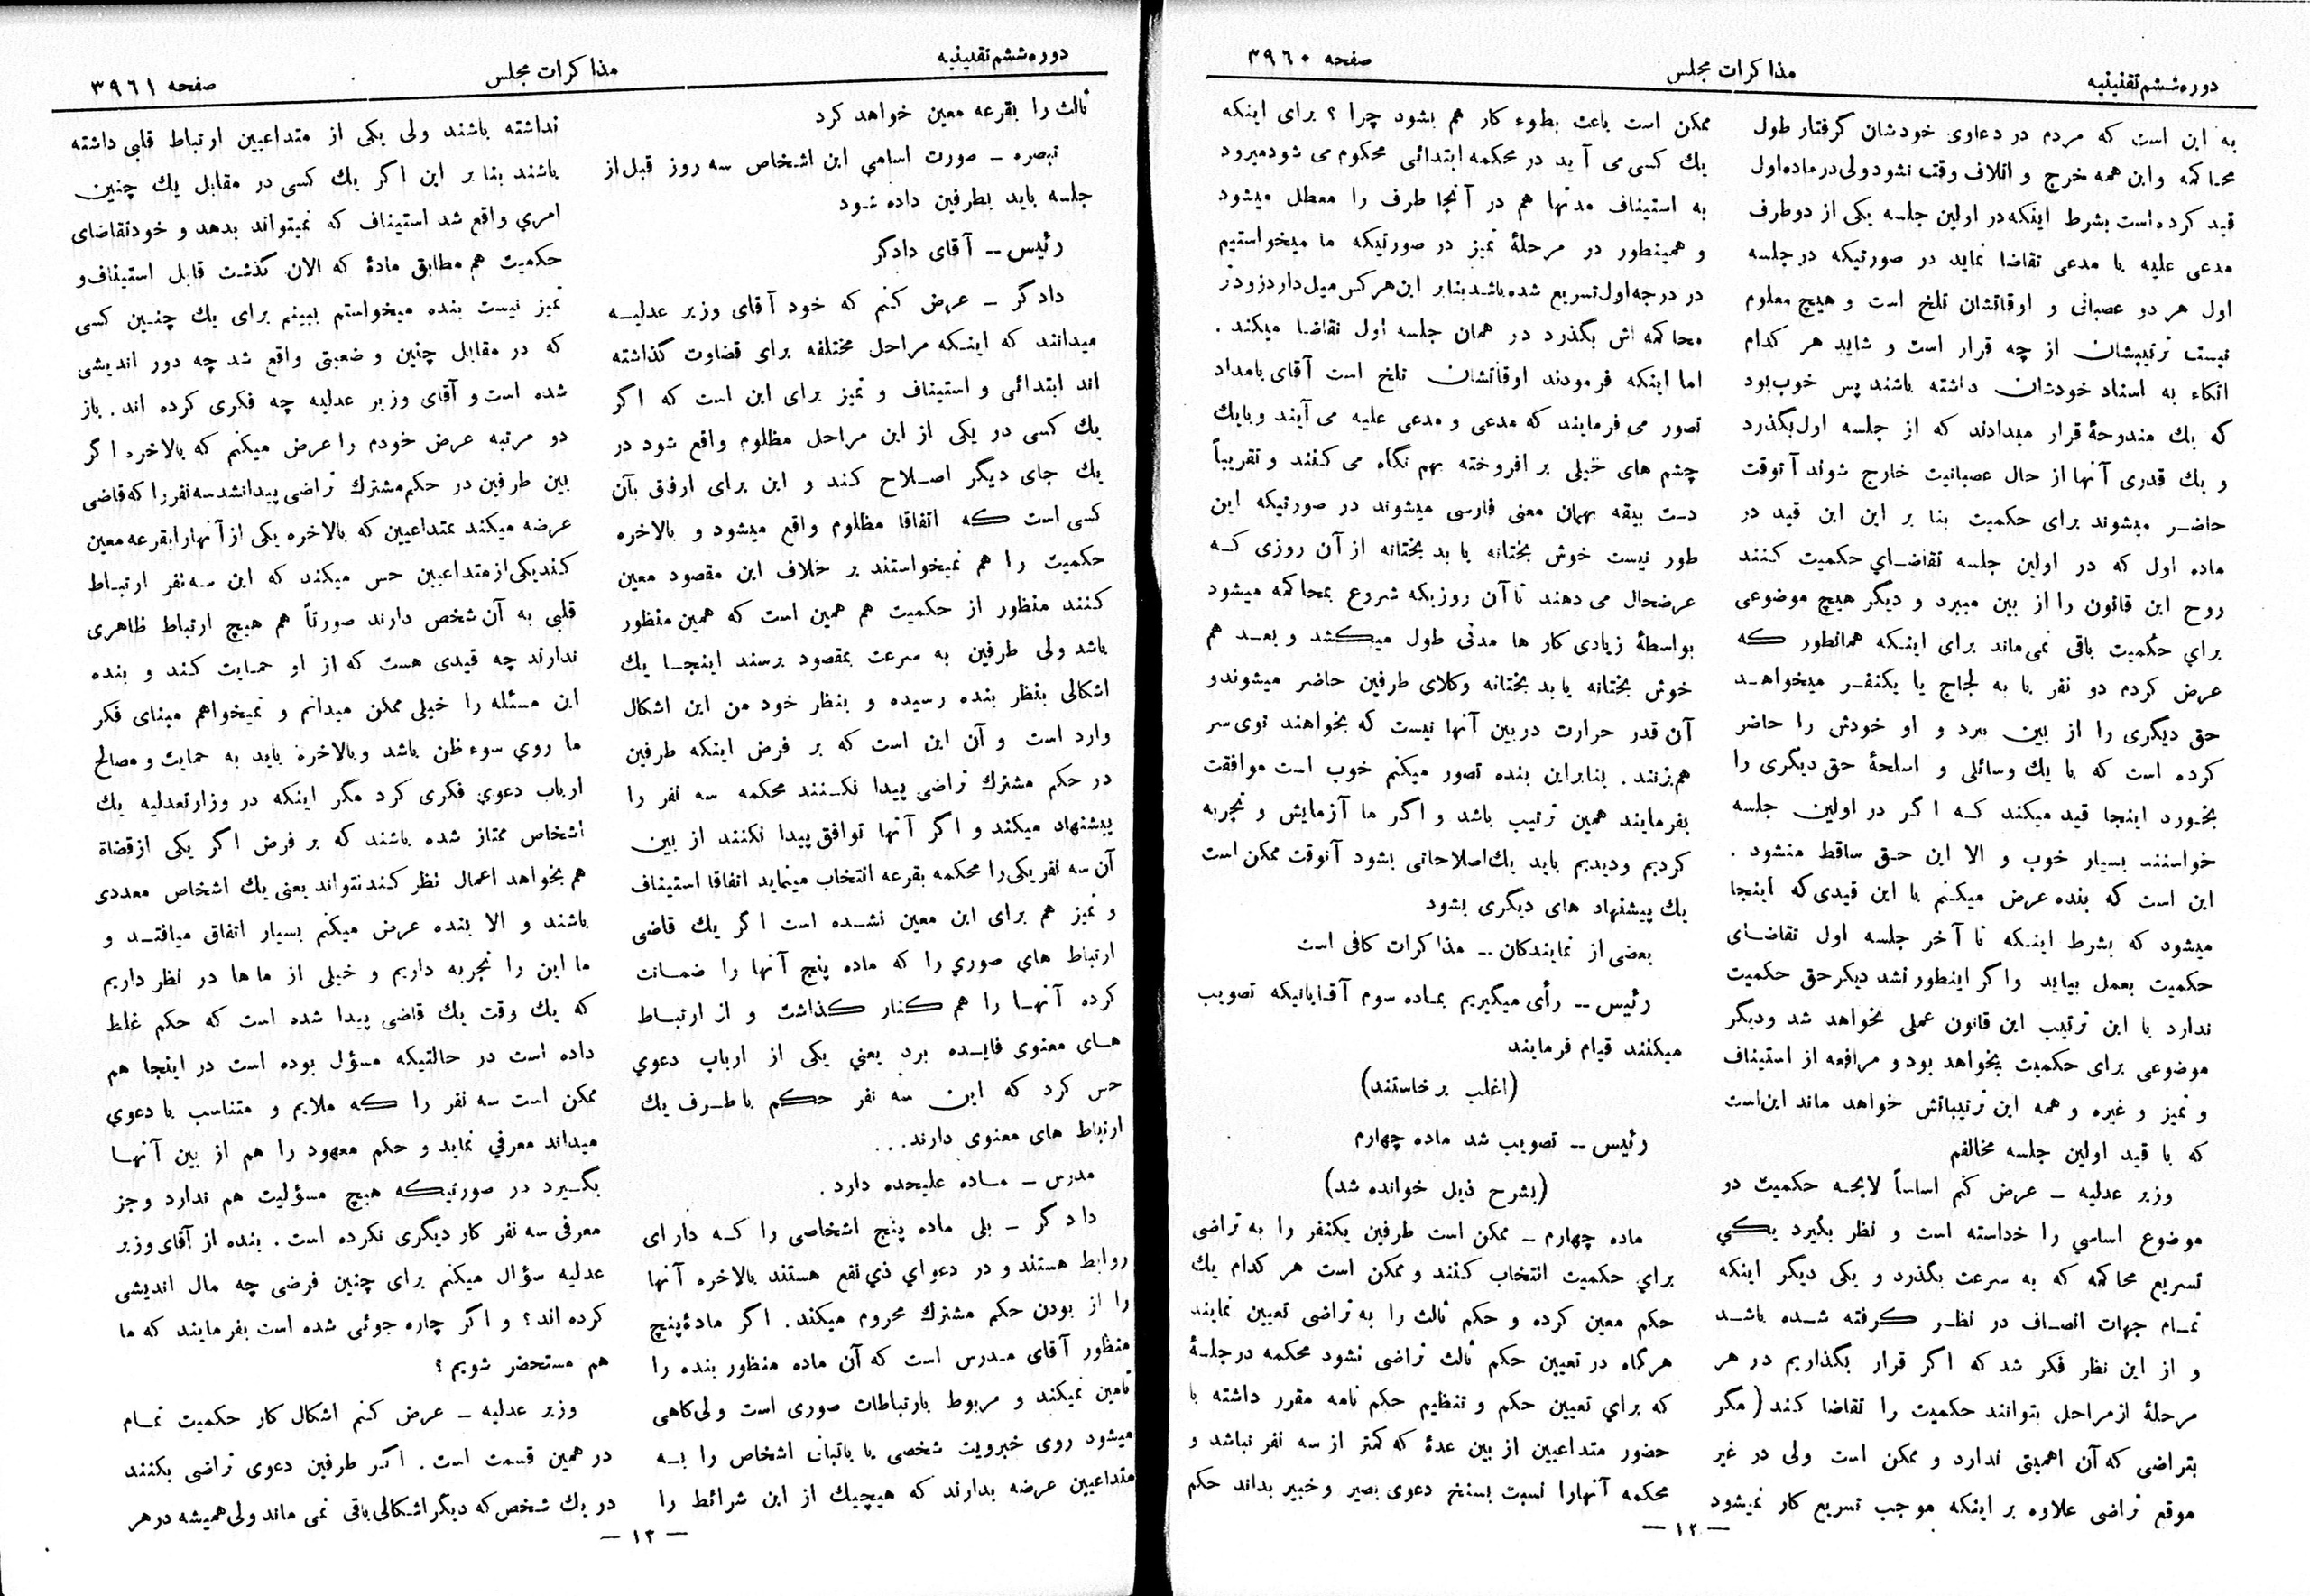 دوره ششم تقنینیه
مذاکرات مجلس
صفحه ۳۹۶۰
به این است که مردم در دعاوی خودشان گرفتار طول
محاکمه واین همه خرج و اتلاف وقت نشود ولی در ماده اول
قید کرده است بشرط اینکه در اولین جلسه یکی از دو طرف
مدعی علیه یا مدعی تقاضا نماید در صورتیکه در جلسه
اول هر دو عصبانی و اوقاتشان تلخ است و هیچ معلوم
نیست ترتیبشان از چه قرار است و شاید هر کدام
اتکاء به اسناد خودشان داشته باشند پس خوب بود
که یك مندوحهٔ قرار میدادند که از جلسه اول بگذرد
و یك قدری آنها از حال عصبانیت خارج شوند آنوقت
حاضر میشوند برای حکمیت بنا بر این این قید در
ماده اول که در اولین جلسه تقاضاي حکمیت کنند
روح این قانون را از بین میبرد و دیگر هیچ موضوعی
براي حکمیت باقی نمی ماند برای اینکه همانطور که
عرض کردم دو نفر یا به لجاج یا یکنفر میخواهد
حق دیگری را از بین ببرد و او خودش را حاضر
کرده است که با یك وسائلی و اسلحهٔ حق دیگری را
بخورد اینجا قید میکند که اگر در اولین جلسه
خواستند بسیار خوب و الا این حق ساقط میشود .
این است که بنده عرض میکنم با این قیدی که اینجا
میشود که بشرط اینکه تا آخر جلسه اول تقاضای
حکمیت بعمل بیاید واگر اینطور نشد دیگر حق حکمیت
ندارد با این ترتیب این قانون عملی نخواهد شد ودیگر
موضوعی برای حکمیت نخواهد بود و مرافعه از استیناف
و تمیز و غیره و همه این ترتیباتش خواهد ماند این است
که با قید اولین جلسه مخالفم
وزیر عدلیه ـ عرض کنم اساساً لایحه حکمیت دو
موضوع اساسي را خداسته است و نظر بگیرد یکي
تسریع محاکمه که به سرعت بگذرد و یکی دیگر اینکه
تمام جهات انصاف در نظر گرفته شده باشد
و از این نظر فکر شد که اگر قرار بگذاریم در هر
مرحلهٔ ازمراحل بتوانند حکمیت را تقاضا کند (مگر
بتراضی که آن اهمیتی ندارد و ممکن است ولی در غیر
موقع تراضی علاوه بر اینکه موجب تسریع کار نمیشود
ممکن است باعث بطوء کار هم بشود چرا ؟ برای اینکه
یك کسی می آید در محکمه ابتدائی محکوم می شود میرود
به استیناف مدتها هم در آنجا طرف را معطل میشود
و همینطور در مرحلهٔ تمیز در صورتیکه ما میخواستیم
در درجه اول تسریع شده باشد بنابر این هرکس میل دارد زودتر
محاکمه اش بگذرد در همان جلسه اول تقاضا میکند .
اما اینکه فرمودند اوقاتشان تلخ است آقای بامداد
تصور می فرمایند که مدعی و مدعی علیه می آیند و بایك
چشم های خیلی بر افروخته بهم نگاه می کنند و تقریباً
دست بیقه بهمان معنی فارسی میشوند در صورتیکه این
طور نیست خوش بختانه یا بد بختانه از آن روزی که
عرضحال می دهند تا آن روزیکه شروع بمحاکمه میشود
بواسطهٔ زیادی کار ها مدتی طول میکشد و بعد هم
خوش بختانه یا بد بختانه وکلای طرفین حاضر میشوند و
آن قدر حرارت در بین آنها نیست که بخواهند توی سر
هم بزنند . بنابراین بنده تصور میکنم خوب است موافقت
بفرمایند همین ترتیب باشد و اگر ما آزمایش و تجربه
کردیم ودیدیم باید یك اصلاحاتی بشود آنوقت ممکن است
یك پیشنهاد های دیگری بشود
بعضی از نمایندگان -- مذاکرات کافی است
رئیس -- رأی میگیریم بماده سوم آقایانیکه تصویب
میکنند قیام فرمایند
(اغلب برخاستند)
رئیس -- تصویب شد ماده چهارم
(بشرح ذیل خوانده شد)
ماده چهارم ـ ممکن است طرفین یکنفر را به تراضی
براي حکمیت انتخاب کنند و ممکن است هر کدام یك
حکم معین کرده و حکم ثالث را به تراضی تعیین نمایند
هرگاه در تعیین حکم ثالث تراضی نشود محکمه در جلسهٔ
که براي تعیین حکم و تنظیم حکم نامه مقرر داشته با
حضور متداعیین از بین عدهٔ که کمتر از سه نفر نباشد و
محکمه آنهارا نسبت بسنخ دعوی بصیر و خبیر بداند حکم
— ۱۲ —
دوره ششم تقنینیه
مذاکرات مجلس
صفحه ۳۹۶۱
ثالث را بقرعه معین خواهد کرد
تبصره ـ صورت اسامي این اشخاص سه روز قبل از
جلسه باید بطرفین داده شود
رئیس -- آقای دادگر
دادگر ـ عرض کنم که خود آقای وزیر عدلیه
میدانند که اینکه مراحل مختلفه برای قضاوت گذاشته
اند ابتدائی و استیناف و تمیز برای این است که اگر
یك کسی در یکی از این مراحل مظلوم واقع شود در
یك جای دیگر اصلاح کند و این برای ارفاق بآن
کسی است که اتفاقا مظلوم واقع میشود و بالاخره
حکمیت را هم نمیخواستند بر خلاف این مقصود معین
کنند منظور از حکمیت هم همین است که همین منظور
باشد ولی طرفین به سرعت بمقصود برسند اینجا یك
اشکالی بنظر بنده رسیده و بنظر خود من این اشکال
وارد است و آن این است که بر فرض اینکه طرفین
در حکم مشترك تراضی پیدا نکنند محکمه سه نفر را
پیشنهاد میکند و اگر آنها توافق پیدا نکنند از بین
آن سه نفر یکی را محکمه بقرعه انتخاب مینماید اتفاقا استیناف
و تمیز هم برای این معین نشده است اگر یك قاضی
ارتباط هاي صوري را که ماده پنج آنها را ضمانت
کرده آنها را هم کنار گذاشت و از ارتباط
های معنوی فایده برد یعني یکی از ارباب دعوي
حس کرد که این سه نفر حکم باطرف یك
ارتباط های معنوی دارند...
مدرس ـ ماده علیحده دارد .
دادگر ـ بلی ماده پنج اشخاصی را که دارای
روابط هستند و در دعواي ذي نفع هستند بالاخره آنها
را از بودن حکم مشترك محروم میکند. اگر مادهٔ پنج
منظور آقای مدرس است که آن ماده منظور بنده را
تامین نمیکند و مربوط بارتباطات صوری است ولی گاهی
میشود روی خبرویت شخصی یا باتبانی اشخاص را به
متداعیین عرضه بدارند که هیچیك از این شرائط را
نداشته باشند ولی یکی از متداعیین ارتباط قلبی داشته
باشند بنا بر این اگر یك کسی در مقابل یك چنین
امري واقع شد استیناف که نمیتواند بدهد و خود تقاضای
حکمیت هم مطابق مادهٔ که الان گذشت قابل استیناف و
تمیز نیست بنده میخواستم ببینم برای یك چنین کسی
که در مقابل چنین وضعیتی واقع شد چه دور اندیشی
شده است و آقای وزیر عدلیه چه فکری کرده اند. باز
دو مرتبه عرض خودم را عرض میکنم که بالاخره اگر
بین طرفین در حکم مشترك تراضی پیدا نشد سه نفر را که قاضی
عرضه میکند بمتداعیین که بالاخره یکی از آنهارا بقرعه معین
کند یکی از متداعیین حس میکند که این سه نفر ارتباط
قلبی به آن شخص دارند صورتاً هم هیچ ارتباط ظاهری
ندارند چه قیدی هست که از او حمایت کند و بنده
این مسئله را خیلی ممکن میدانم و نمیخواهم مبنای فکر
ما روي سوء ظن باشد و بالاخره باید به حمایت و مصالح
ارباب دعوي فکری کرد مگر اینکه در وزارتعدلیه یك
اشخاص ممتاز شده باشند که بر فرض اگر یکی از قضاة
هم بخواهد اعمال نظر کند نتواند یعنی یك اشخاص معددی
باشند و الا بنده عرض میکنم بسیار اتفاق میافتد و
ما این را تجربه داریم و خیلی از ما ها در نظر داریم
که یك وقت یك قاضی پیدا شده است که حکم غلط
داده است در حالتیکه مسؤل بوده است در اینجا هم
ممکن است سه نفر را که ملایم و متناسب با دعوي
میداند معرفي نماید و حکم معهود را هم از بین آنها
بگیرد در صورتیکه هیچ مسؤلیت هم ندارد وجز
معرفی سه نفر کار دیگری نکرده است . بنده از آقای وزیر
عدلیه سؤال میکنم برای چنین فرضی چه مال اندیشی
کرده اند؟ و اگر چاره جوئی شده است بفرمایند که ما
هم مستحضر شویم ؟
وزیر عدلیه ـ عرض کنم اشکال کار حکمیت تمام
در همین قسمت است . اگر طرفین دعوی تراضی بکنند
در یك شخص که دیگر اشکالی باقی نمی ماند ولی همیشه در هر
— ۱۳ —